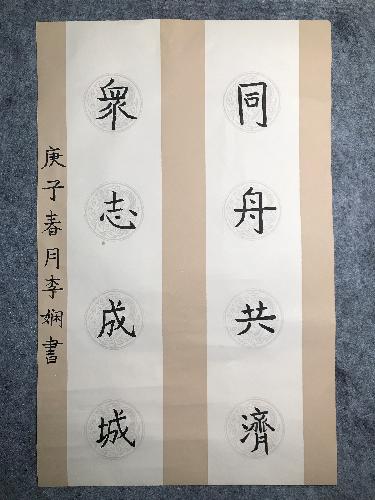 同舟共濟
衆志成城
庚子春月李娴書